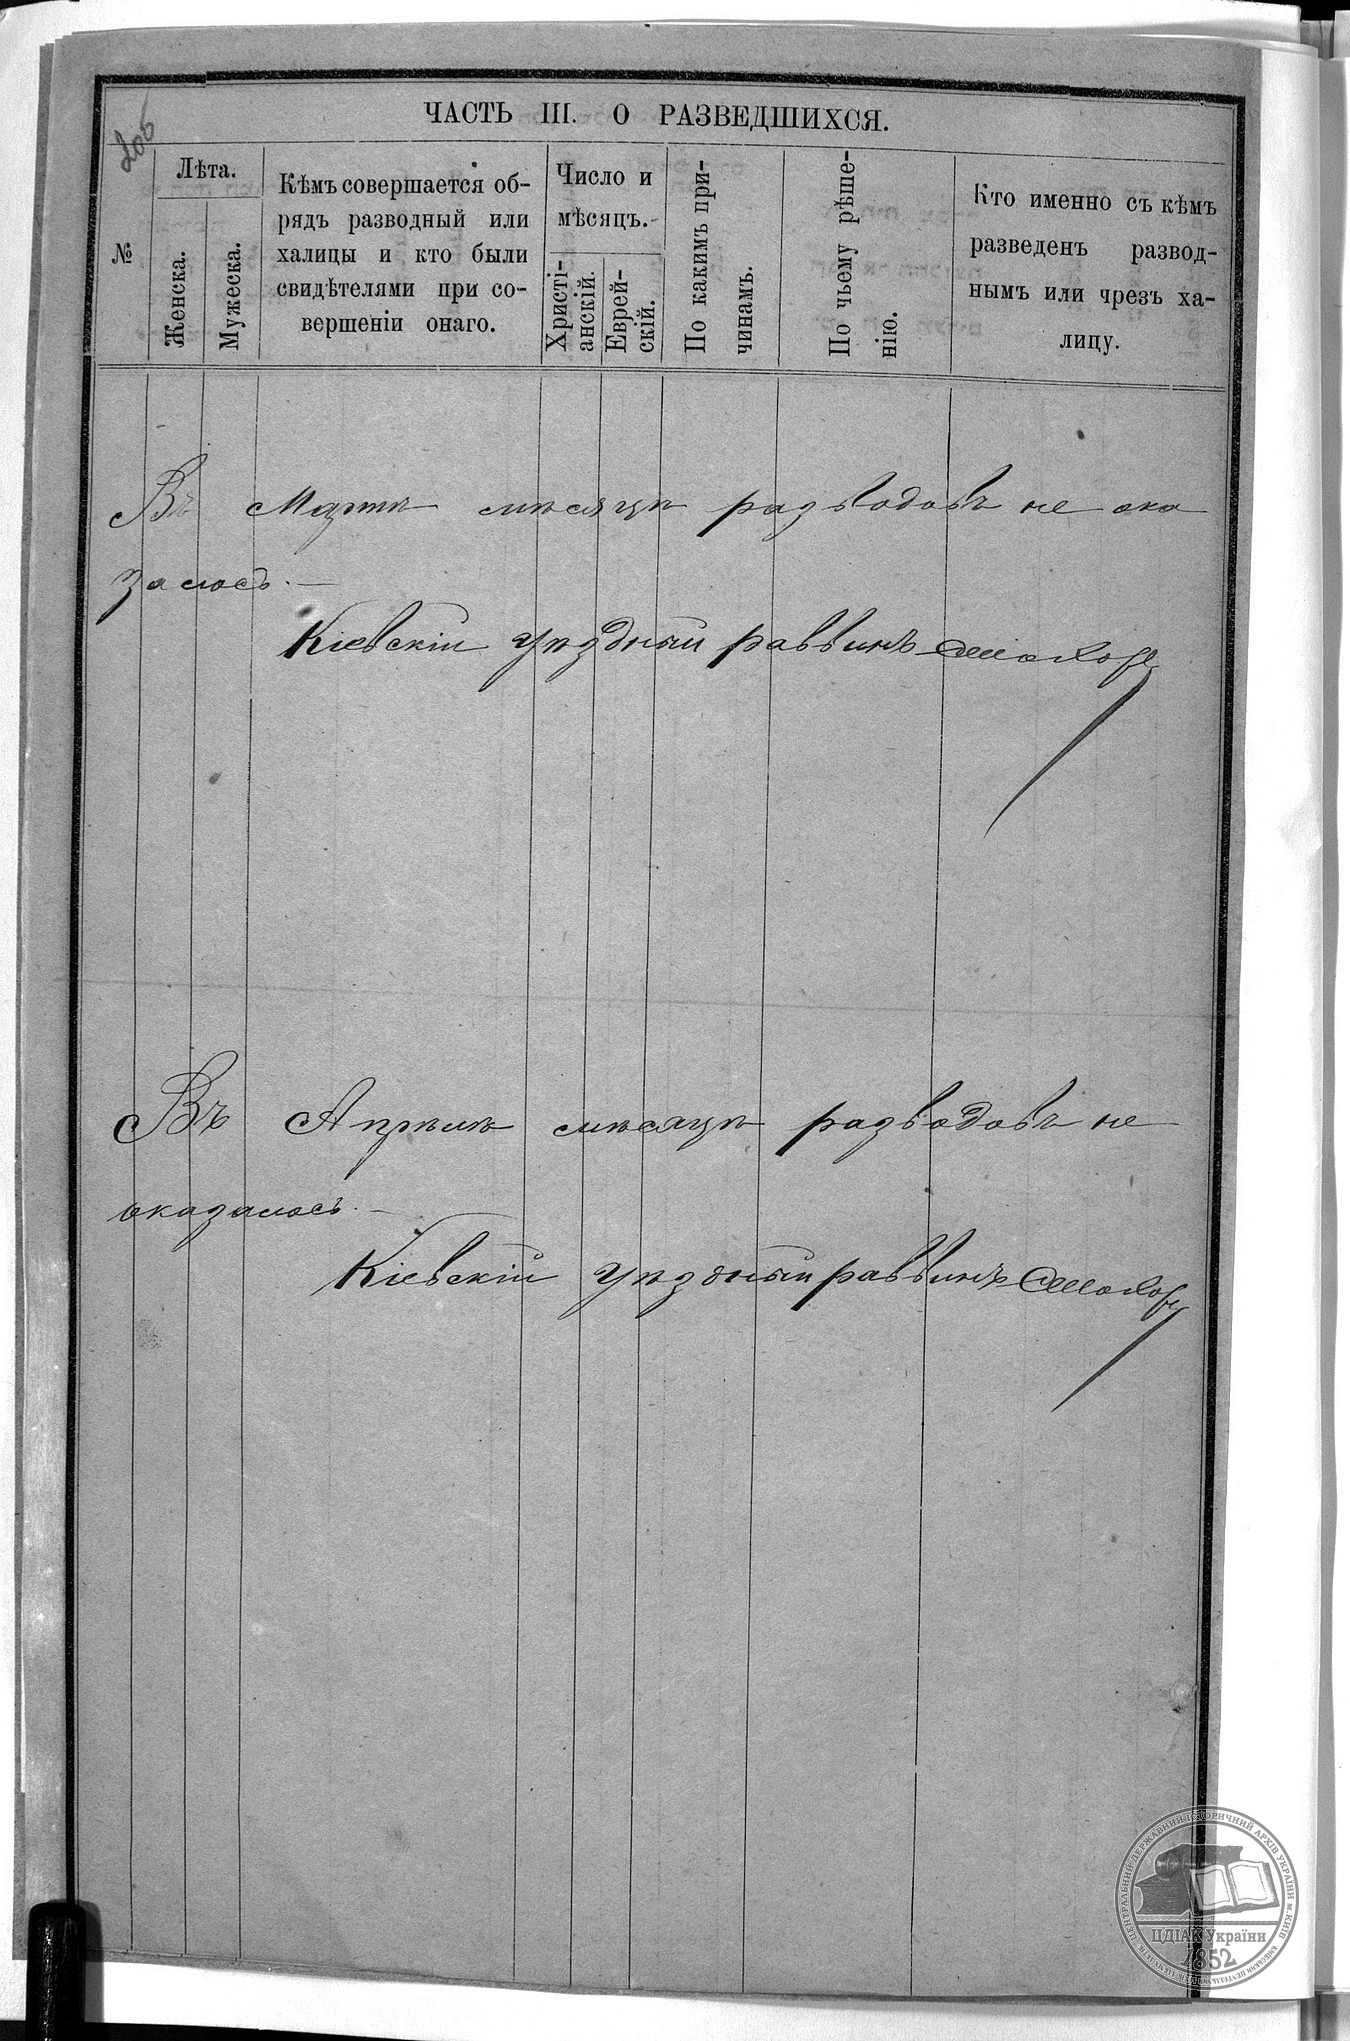 205
ЧАСТЬ III. О РАЗВЕДШИХСЯ.
№
Лѣта.
Женска.
Мужеска.
Кѣмъ совершается об-
рядъ разводный или
халицы и кто были
свидѣтелями при со-
вершеніи онаго.
Число и
мѣсяцъ.
Христі-
анскій.
Еврей-
скій.
По какимъ при-
чинамъ.
По чьему рѣше-
нію.
Кто именно съ кѣмъ
разведенъ развод-
нымъ или чрезъ ха-
лицу.
Въ Мартѣ мѣсяцѣ разводовъ не ока
залось. —
Кіевскій уѣздный раввинъ
Въ Апрѣлѣ мѣсяцѣ разводовъ не
оказалось. —
Кіевскій уѣздный раввинъ
ЦЕНТРАЛЬНИЙ ДЕРЖАВНИЙ ІСТОРИЧНИЙ АРХІВ УКРАЇНИ м.КИЇВ
ЦДІАК України
1852